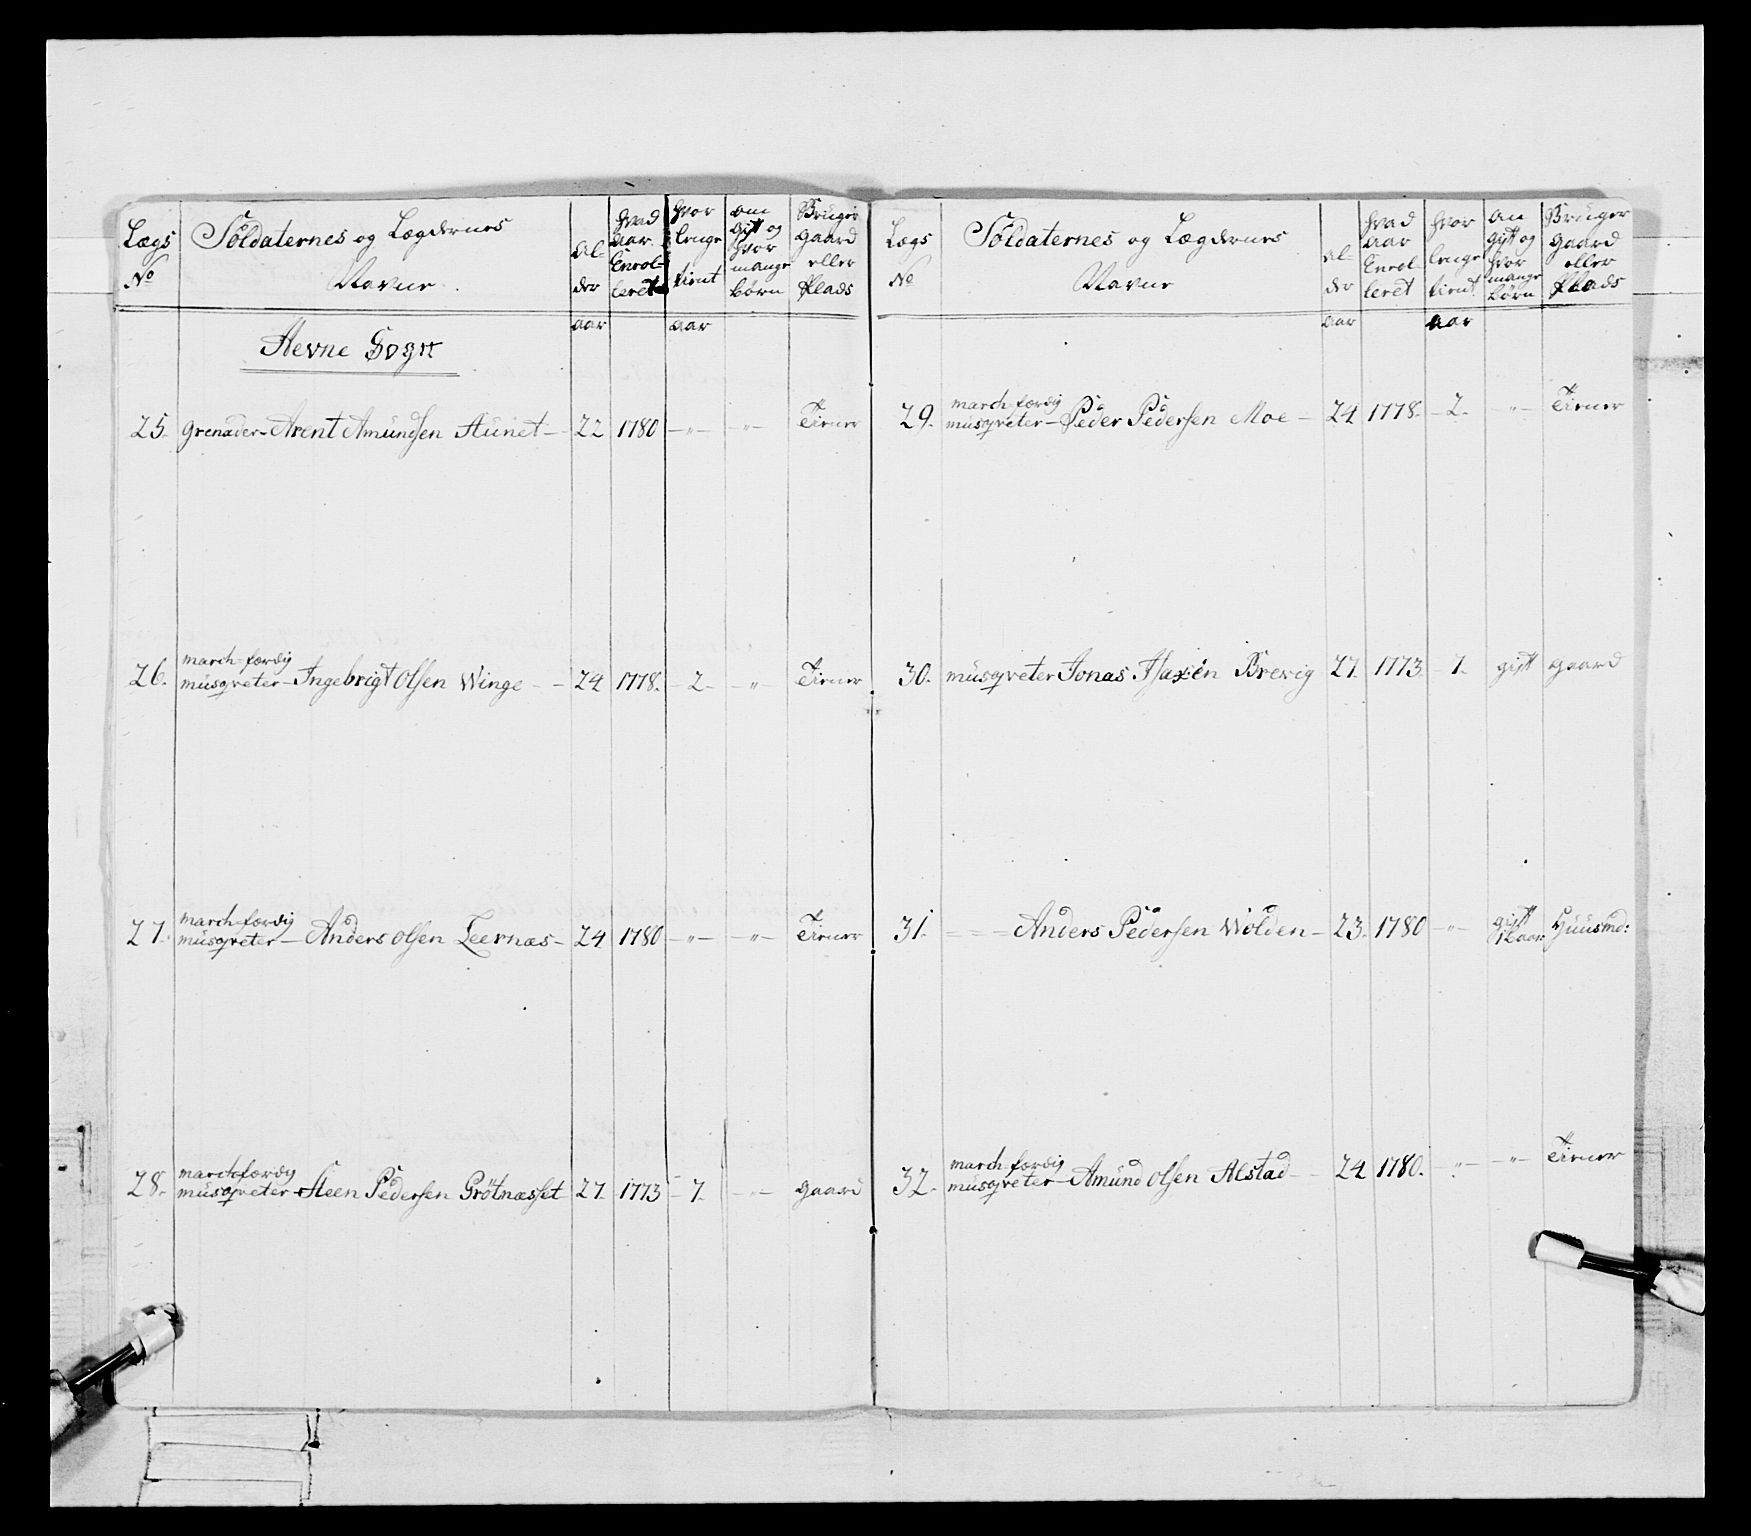 Lægs No | Soldaternes og Lægdernes Navne | Al-der | hvad Aar Enrol-leret | hvor lenge tient | om gift og hvor mange børn | Bruger gaard eller Plads
aar | aar
Hevne Sogn
25. | Grenader - Arent Amundsen Aunet | 22 | 1780 | " | " | Tiener
march-færdig
26. | musqveter - Ingebrigt Olsen Winge | 24 | 1778. | 2 | " | Tiener
march-færdig
27. | musqveter - Anders Olsen Leernæs | 24 | 1780 | " | " | Tiener
marchfærdig
28. | musqveter - Steen Pedersen Grøtnæsset | 27. | 1773 | 7. | " | gaard
Lægs No | Soldaternes og Lægdernes Navne | Al-der | hvad Aar Enrol-leret | hvor lenge tient | om gift og hvor mange børn | Bruger gaard eller Plads
aar | aar
march-færdig
29. | musqveter - Peder Pedersen Moe | 24 | 1778. | 2. | " | Tiener
30. | musqveter Jonas Isaxen Brevig | 27. | 1773 | 7. | gift | gaard
31. | Anders Pedersen Wolden | 23. | 1780 | " | gift | Huusmd:
march-færdig
32. | musqveter - Amund Olsen Alstad | 24 | 1780. | " | " | Tiener